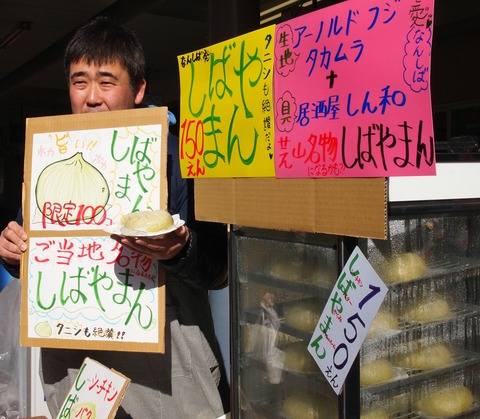 旨い!!
しばやまん
限定100コ
ご当地名物
しばやまん
タニシも絶讃!!
なんしばだ
しばやまん
150えん
タニシも絶讃だよ♥
生地
アーノルドフジ
タカムラ
+
具
居酒屋しん和
芝山名物
になるかも??
しばやまん
愛なんしば
しばやまん
150えん
シーチキン
しば